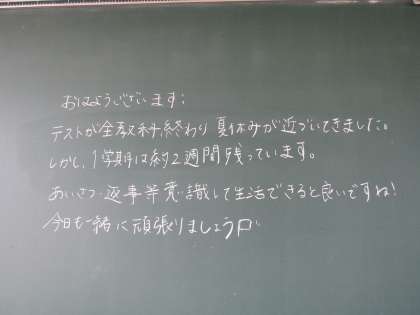 おはようございます:
テストが全教科終わり夏休みが近づいてきました。
しかし、1学期は約2週間残っています。
あいさつ・返事等意識して生活できると良いですね!
今日も一緒に頑張りましょう